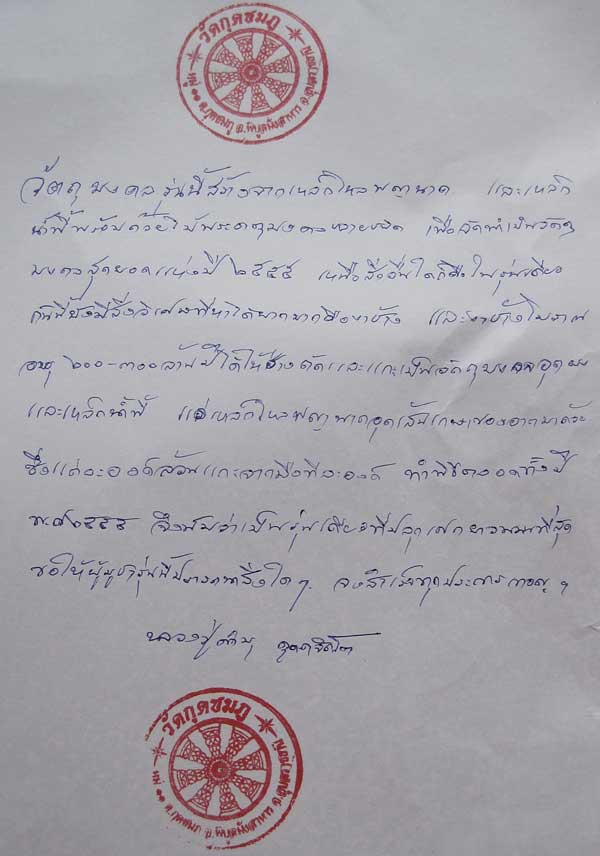 วัดกุดชมภู
หมู่ ๑๑ ต.กุดชมภู อ.พิบูลมังสาหาร จ.อุบลราชธานี
วัตถุมงคลรุ่นนี้สร้างจากเหล็กไหลพญานาค และเหล็ก
น้ำพี้พร้อมด้วย เพื่อจัดทำเป็นวัตถุ
มงคลสุดยอดแห่งปี ๒๕๕๔ เหนือสิ่งอื่นใดก็คือในรุ่นเดียว
กันนี้ยังมีสิ่งวิเศษที่หาได้ยากมากคืองาช้าง และงาช้างโบราณ
อายุ ๒๐๐-๓๐๐ล้านปีได้ให้ช่างตัดและแกะเป็นวัตถุมงคล
และเหล็กน้ำพี้ แร่เหล็กไหลพญานาคอุดเส้นเกษาของอาตมาด้วย
ซึ่งแต่ละองค์ล้วนแกะจากมือทีละองค์ ทำพิธีตลอดทั้งปี
พ.ศ.๒๕๕๔ จึงนับว่าเป็นรุ่นเดียวที่ปลุกเสกยาวนานที่สุด
ขอให้ผู้บูชารุ่นนี้ปรารถนาสิ่งใดๆ จงสำเร็จทุกประการ
หลวงปู่คำบุ คุตฺตจิตฺโต
วัดกุดชมภู
หมู่ ๑๑ ต.กุดชมภู อ.พิบูลมังสาหาร จ.อุบลราชธานี